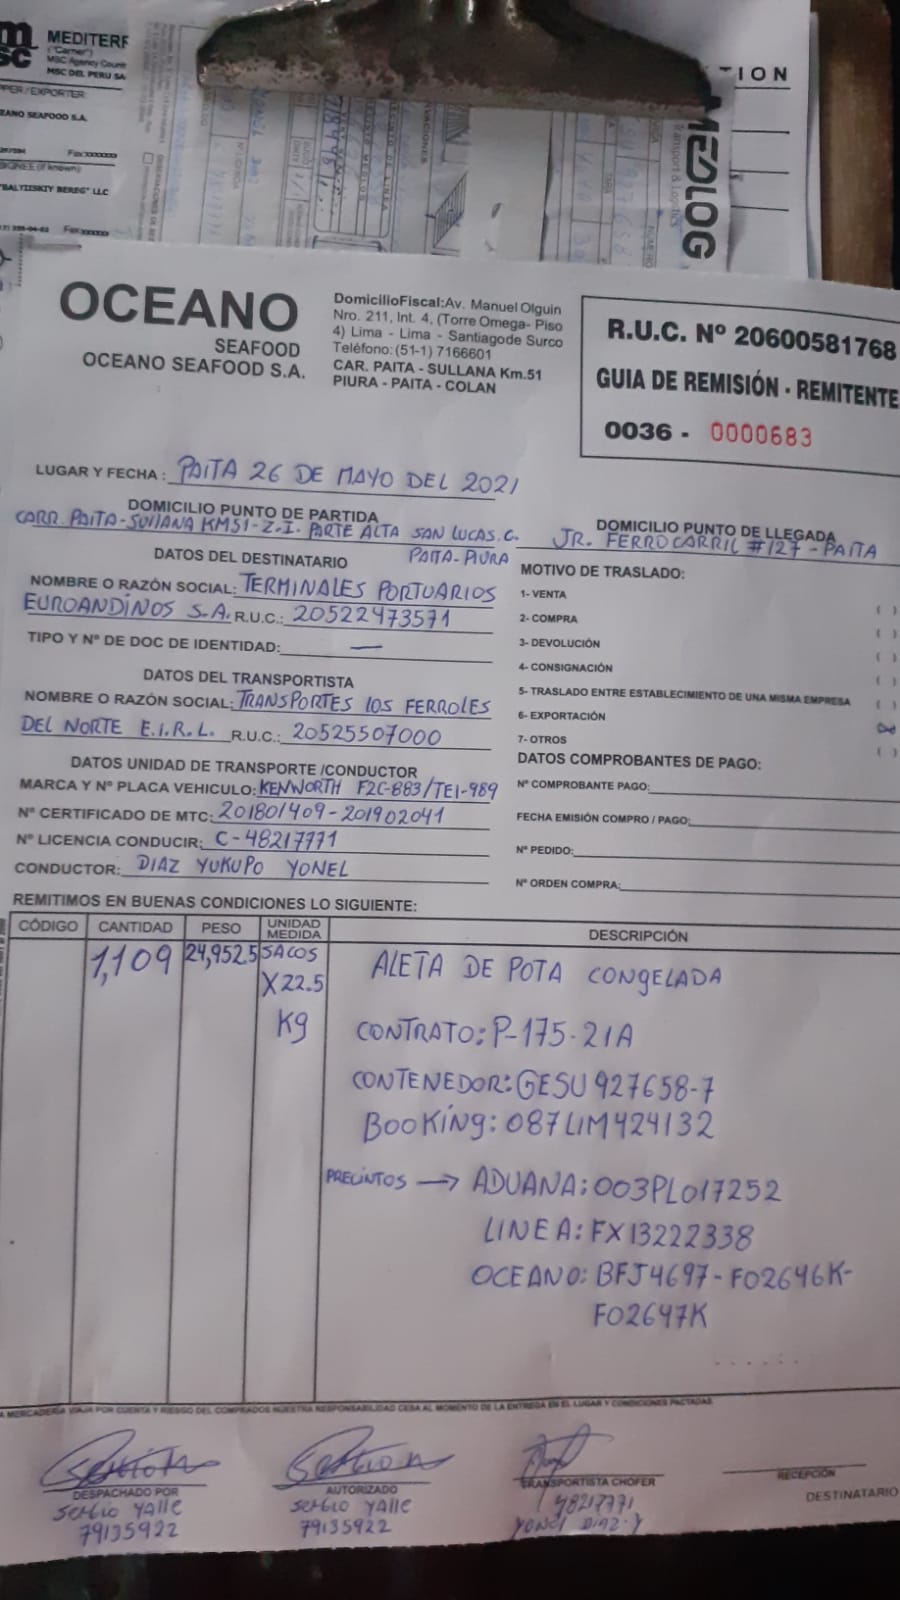 MEDITERR
("Carrier")
MSC Agency Count
MSC DEL PERU SA
PPER/EXPORTER
EANO SEAFOOD S.A.
Fax:xxxxxxx
SIGNEE (if known)
"BALTIISKIY BEREG" LLC
Fax:xxxxxx
TION
MEDLOG
Transport & Logistics
OCEANO
SEAFOOD
OCEANO SEAFOOD S.A.
DomicilioFiscal:Av. Manuel Olguin
Nro. 211, Int. 4, (Torre Omega- Piso
4) Lima - Lima - Santiagode Surco
Teléfono: (51-1) 7166601
CAR. PAITA - SULLANA Km.51
PIURA - PAITA - COLAN
R.U.C. Nº 20600581768
GUIA DE REMISIÓN - REMITENTE
0036 - 0000683
LUGAR Y FECHA : PAITA 26 DE MAYO DEL 2021
DOMICILIO PUNTO DE PARTIDA
CARR. PAITA-SULLANA KM51-Z.I. PARTE ALTA SAN LUCAS.C.
PAITA-PIURA
DOMICILIO PUNTO DE LLEGADA
JR. FERROCARRIL #127 - PAITA
DATOS DEL DESTINATARIO
NOMBRE O RAZÓN SOCIAL: TERMINALES PORTUARIOS
EUROANDINOS S.A. R.U.C.: 20522473571
TIPO Y Nº DE DOC DE IDENTIDAD: —
DATOS DEL TRANSPORTISTA
NOMBRE O RAZÓN SOCIAL: TRANSPORTES LOS FERROLES
DEL NORTE E.I.R.L. R.U.C.: 20525507000
DATOS UNIDAD DE TRANSPORTE /CONDUCTOR
MARCA Y Nº PLACA VEHICULO: KENWORTH F2C-883/TE1-989
Nº CERTIFICADO DE MTC: 201801409-201902041
Nº LICENCIA CONDUCIR: C-48217771
CONDUCTOR: DIAZ YUKUPO YONEL
MOTIVO DE TRASLADO:
1- VENTA ( )
2- COMPRA ( )
3- DEVOLUCIÓN ( )
4- CONSIGNACIÓN ( )
5- TRASLADO ENTRE ESTABLECIMIENTO DE UNA MISMA EMPRESA ( )
6- EXPORTACIÓN
7- OTROS ( )
DATOS COMPROBANTES DE PAGO:
Nº COMPROBANTE PAGO:
FECHA EMISIÓN COMPRO / PAGO:
Nº PEDIDO:
Nº ORDEN COMPRA:
REMITIMOS EN BUENAS CONDICIONES LO SIGUIENTE:
CÓDIGO CANTIDAD PESO UNIDAD MEDIDA DESCRIPCIÓN
1,109 24,952.5 SACOS ALETA DE POTA CONGELADA
X22.5
Kg
CONTRATO: P-175-21A
CONTENEDOR: GESU 927658-7
BOOKING: 087LIM424132
PRECINTOS → ADUANA: 003PL017252
LINEA: FX13222338
OCEANO: BFJ4697 - F02646K-
F02647K
LA MERCADERIA VIAJA POR CUENTA Y RIESGO DEL COMPRADOR NUESTRA RESPONSABILIDAD CESA AL MOMENTO DE LA ENTREGA EN EL LUGAR Y CONDICIONES PACTADAS
DESPACHADO POR
Sergio Yalle
79135922
AUTORIZADO
Sergio Yalle
79135922
TRANSPORTISTA CHOFER
48217771
Yonel Diaz.Y
RECEPCIÓN
DESTINATARIO